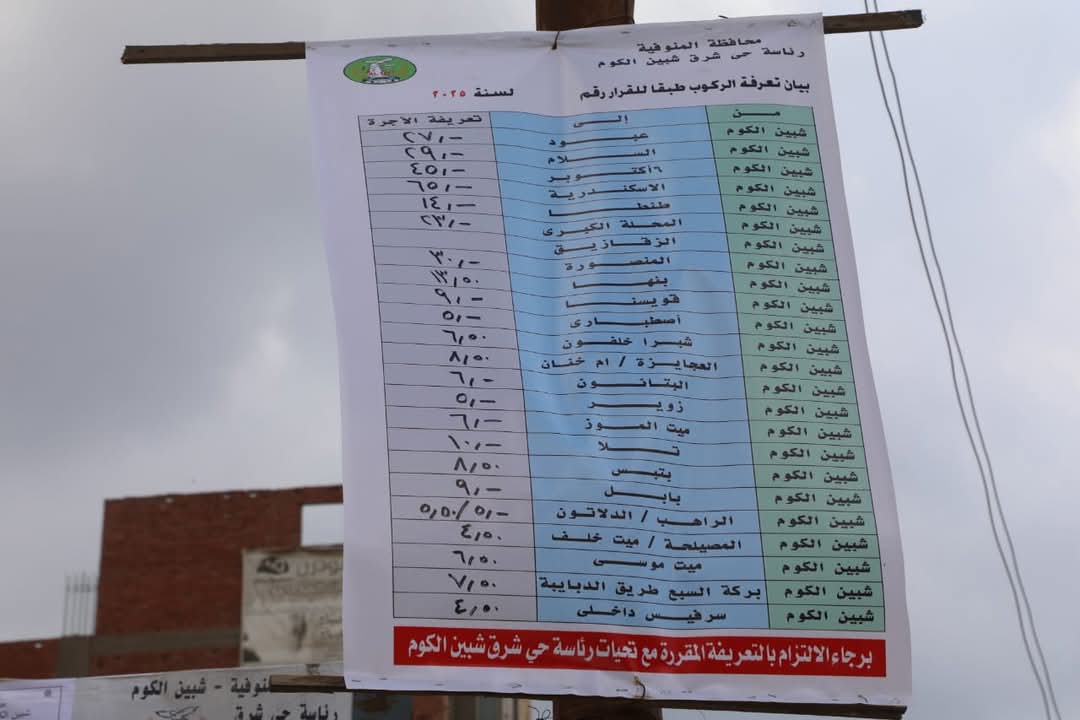 محافظة المنوفية
رئاسة حى شرق شبين الكوم
بيان تعرفة الركوب طبقا للقرار رقم لسنة ٢٠٢٥
من إلى تعريفة الأجرة
شبين الكوم عبود ٢٧,-
شبين الكوم السلام ٢٩,-
شبين الكوم ٦ أكتوبر ٤٥,-
شبين الكوم الاسكندرية ٦٥,-
شبين الكوم طنطا ١٤,-
شبين الكوم المحلة الكبرى ٢٣,-
شبين الكوم الزقازيق
شبين الكوم المنصورة ٣٠,-
شبين الكوم بنها ١٣,٥٠
شبين الكوم قويسنا ٩,-
شبين الكوم أصطبارى ٥,-
شبين الكوم شبرا خلفون ٦,٥٠
شبين الكوم العجايزة / ام خنان ٨,٥٠
شبين الكوم البتانون ٦,-
شبين الكوم زوير ٥,-
شبين الكوم ميت الموز ٦,-
شبين الكوم تلا ١٠,-
شبين الكوم بتبس ٨,٥٠
شبين الكوم بابل ٩,-
شبين الكوم الراهب / الدلاتون ٥,٥٠/٥,-
شبين الكوم المصيلحة / ميت خلف ٤,٥٠
شبين الكوم ميت موسى ٦,٥٠
شبين الكوم بركة السبع طريق الدبابية ٧,٥٠
شبين الكوم سرفيس داخلى ٤,٥٠
برجاء الالتزام بالتعريفة المقررة مع تحيات رئاسة حي شرق شبين الكوم
المنوفية - شبين الكوم
رئاسة حى شرق